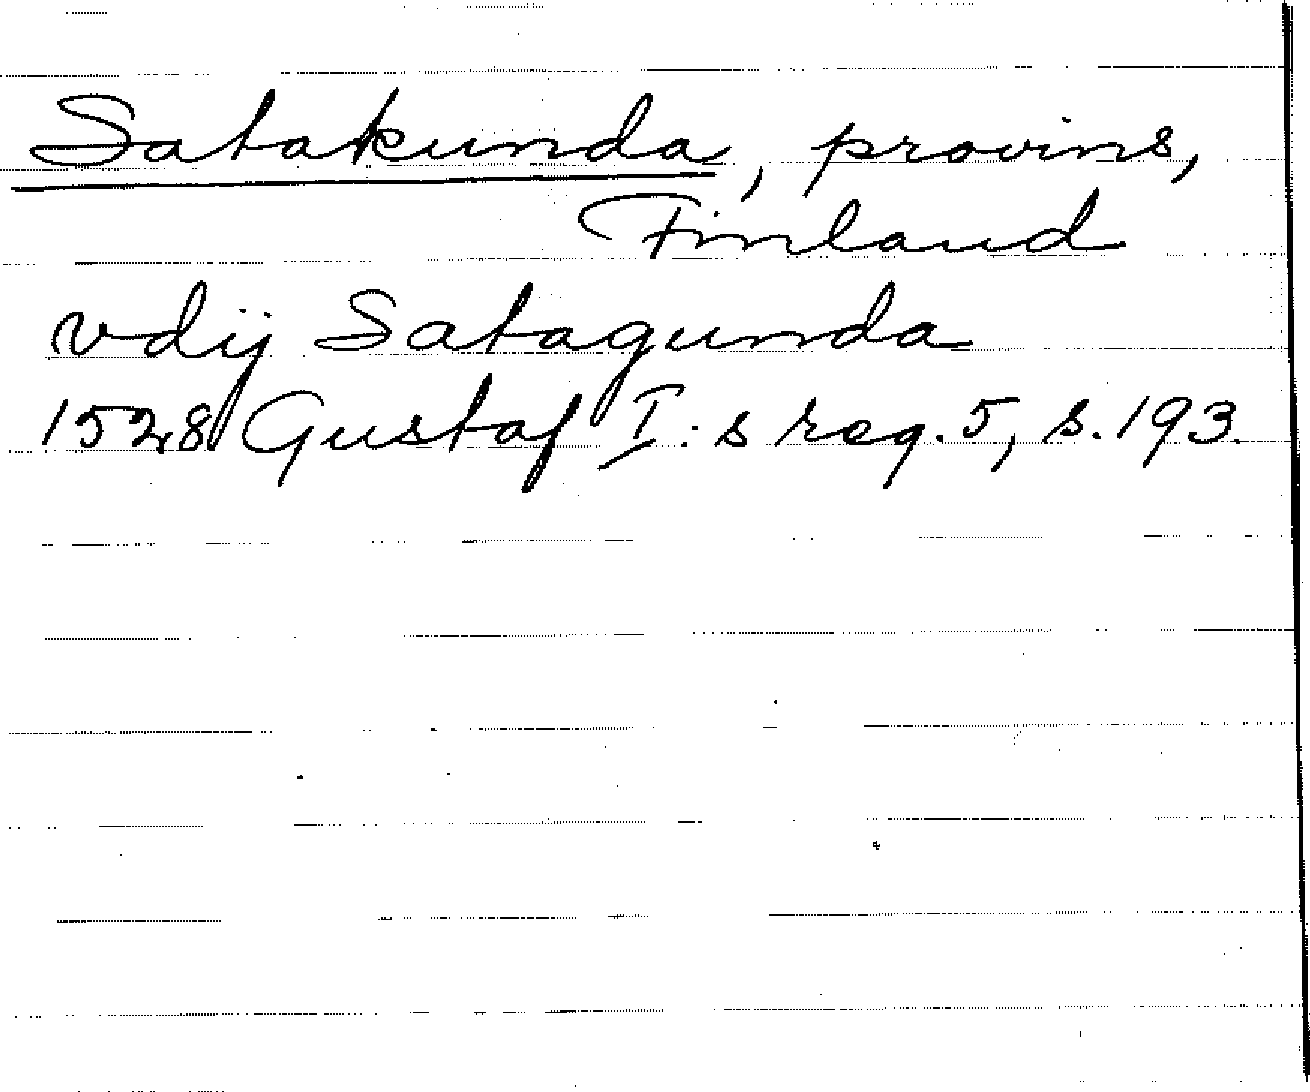 Satakunda, provins,
Finland
vdij Satagunda
1528 Gustaf I:s reg. 5, s. 193.